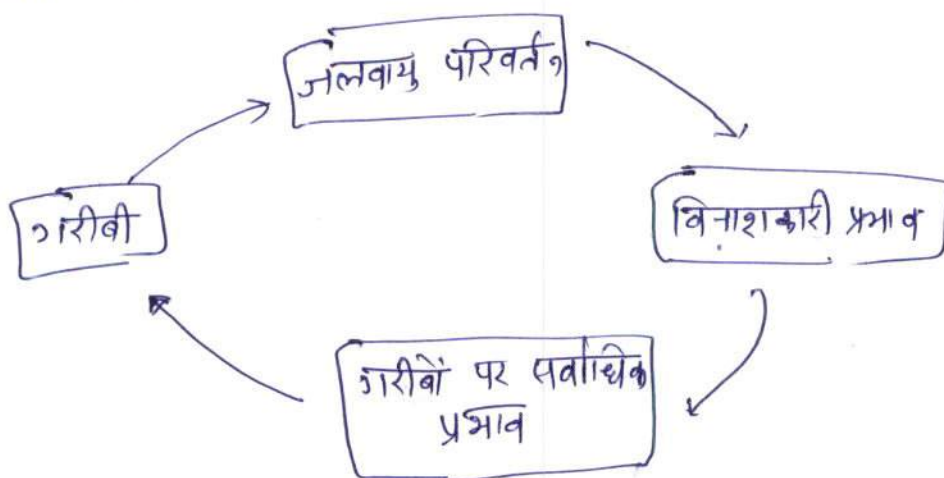 जलवायु परिवर्तन
विनाशकारी प्रभाव
गरीबों पर सर्वाधिक
प्रभाव
गरीबी